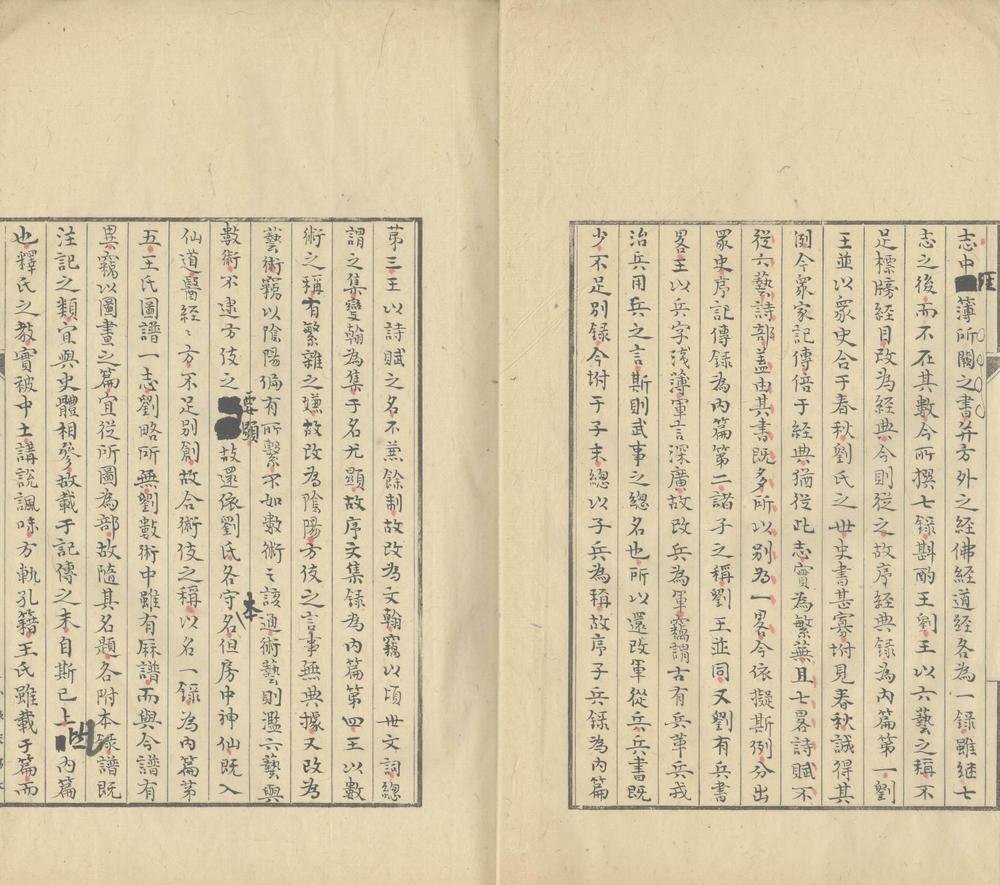 志中簿所闕之書并方外之經佛經道經各為一錄雖继七
志之後而不在其數今所撰七錄斟酌王劉王以六藝之稱不
足標牓經目改為經典今則從之故序經典錄為內篇第一劉
王並以衆史合于春秋劉氏之世史書甚寡坿見春秋誠得其
例今衆家記傳倍于經典猶從此志實為繁蕪且七畧詩賦不
從六藝詩部盖由其書既多所以別為一畧今依擬斯例分出
衆史序記傳錄為內篇第二諸子之稱劉王並同又劉有兵書
畧王以兵字淺薄軍言深廣故改兵為軍竊謂古有兵革兵戎
治兵用兵之言斯則武事之總名也所以還改軍從兵兵書既
少不足別錄今坿于子末總以子兵為稱故序子兵錄為內篇
第三王以詩賦之名不蕪餘制故改為文翰竊以頃世文詞總
謂之集變翰為集于名尤顯故序文集錄為內篇第四王以數
術之稱有繁雜之嫌故改為陰陽方伎之言事無典據又改為
藝術竊以陰陽徧有所繫不如數術之該通術藝則濫六藝與
數術不逮方伎之要顯故還依劉氏各守本名但房中神仙既入
仙道醫經經方不足別創故合術伎之稱以名一錄為內篇第
五王氏圖譜一志劉略所無劉數術中雖有厤譜而與今譜有
異竊以圖畫之篇宜從所圖為部故隨其名題各附本錄譜既
注記之類宜與史體相參故載于記傳之末自斯已上皆內篇
也釋氏之教實被中土講說諷味方軌孔籍王氏雖載于篇而